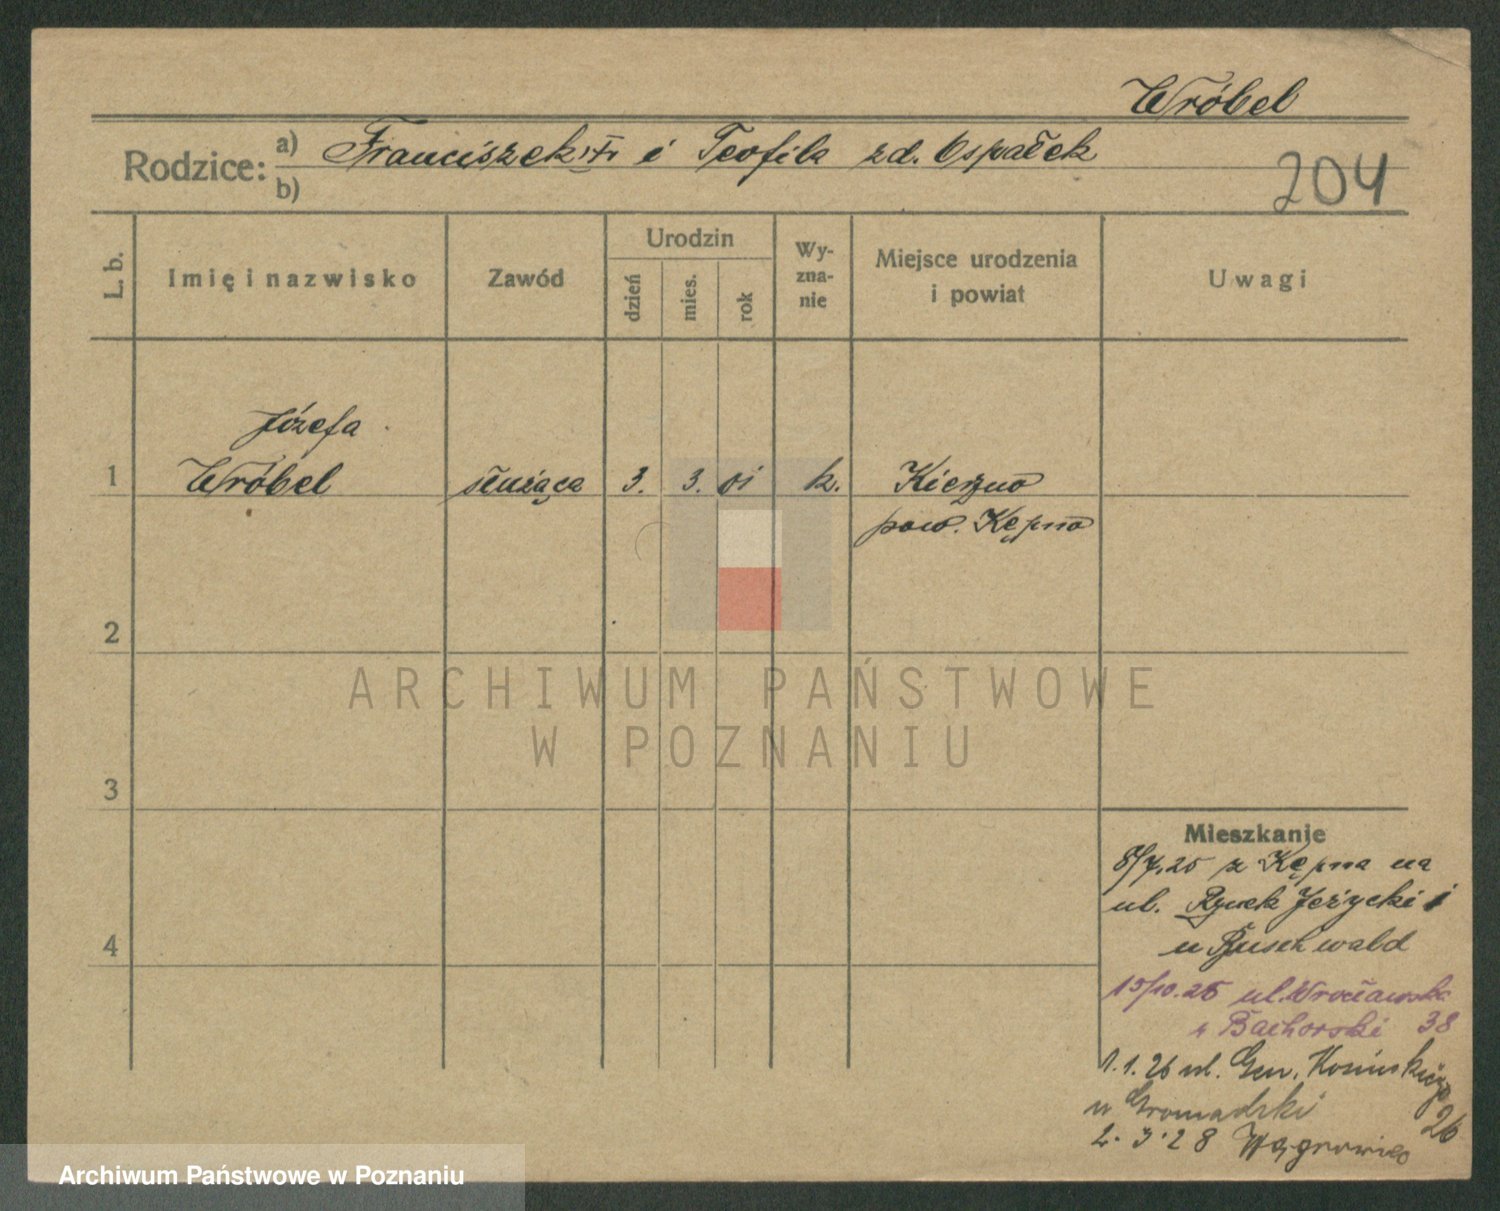 Wróbel
Rodzice: a) Franciszek i Teofila zd. Ospałek
b)
204
L. b.
Imię i nazwisko
Zawód
Urodzin
dzień
mies.
rok
Wy-
zna-
nie
Miejsce urodzenia
i powiat
Uwagi
Józefa
1 Wróbel służąca 3. 3. 01 k. Kierzno
pow. Kępno
2
ARCHIWUM PAŃSTWOWE
W POZNANIU
3
4
Mieszkanie
8/7.25 z Kępna na
ul. Rynek Jeżycki 1
u Buschwald
15/10.25 ul. Wrocławska
u Bachorski 38
1.1.26 ul. Gen. Kosińskiego
u Gromadzki 26
2.3.28 Wągrowiec
Archiwum Państwowe w Poznaniu